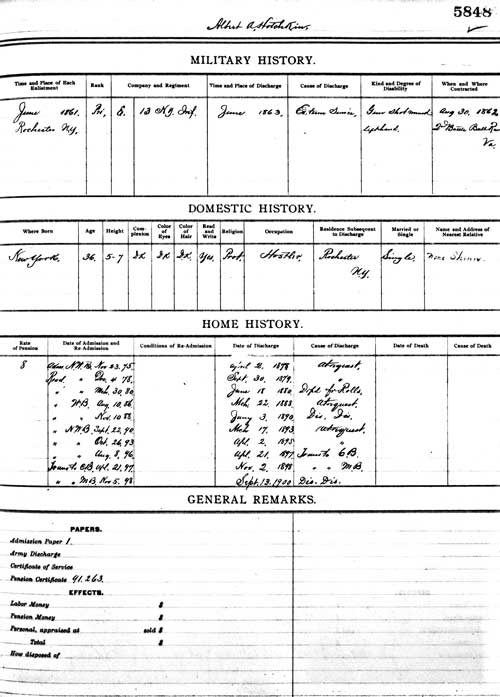 5848
Albert A. Hotchkins.
MILITARY HISTORY.
Time and Place of Each Enlistment Rank Company and Regiment Time and Place of Discharge Cause of Discharge Kind and Degree of Disability When and Where Contracted
June 1861. Pri, E. 13 N.Y. Inf. June 1863, Ex. term Service, Gun Shot wound Aug 30, 1862
Rochester N.Y. left hand. 2d Battle Bull Run
Va.
DOMESTIC HISTORY.
Where Born Age Height Complexion Color of Eyes Color of Hair Read and Write Religion Occupation Residence Subsequent to Discharge Married or Single Name and Address of Nearest Relative
New York. 36. 5-7 Dk Dk Dk. Yes. Prot. Hostler. Rochester Single.
N.Y.
HOME HISTORY.
Rate of Pension Date of Admission and Re-Admission Conditions of Re-Admission Date of Discharge Cause of Discharge Date of Death Cause of Death
8 Adm. N.W.B. Nov 23. 75. April 2. 1878 at request.
Read. " Dec. 4 78. Sept. 30. 1879. "
" " Mch. 30. 80. June 18 1880. Dropd fr Rolls.
" W.B. Aug. 10. 86. Mch. 22. 1888. at request.
" " Nov. 10 88. 3. 1890. Dis.
" N.W.B. Sept. 22, 90. Mch 17. 1893. at request.
" " Oct. 26, 93 Apl. 2. 1895 "
" " Aug. 8, 96. Apl. 21. 1897. to S.B.
S.B. Apl. 21, 97. Nov. 2. 1898 " " M.B.
" " M.B. Nov 5. 98 Sept. 13. 1900 Dis. Dis.
GENERAL REMARKS.
PAPERS.
Admission Paper 1.
Army Discharge
Certificate of Service
Pension Certificate 91.263.
EFFECTS.
Labor Money $
Pension Money $
Personal, appraised at sold $
Total $
How disposed of